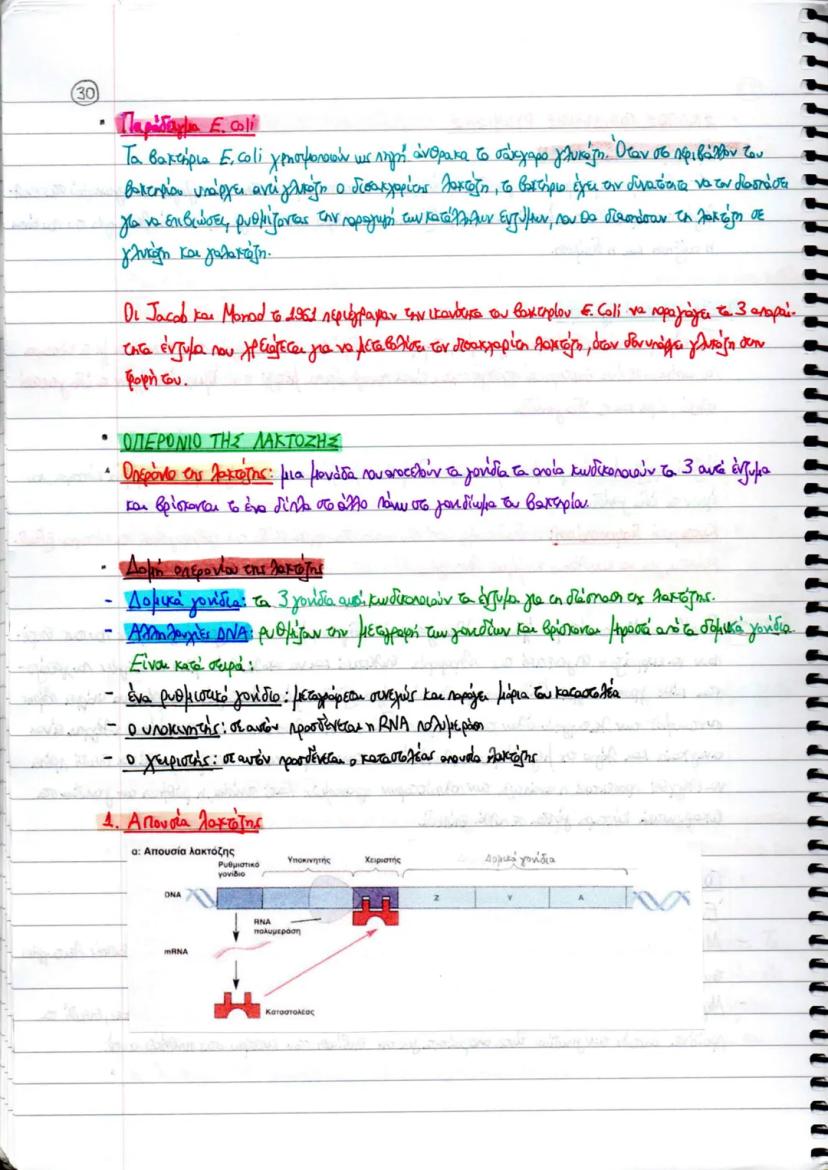 30
• Παράδειγμα E. Coli
Τα βακτήρια E. Coli χρησιμοποιούν ως πηγή άνθρακα το σάκχαρο γλυκόζη. Όταν σε περιβάλλον του
βακτηρίου υπάρχει αντί γλυκόζη ο δισακχαρίτης λακτόζη, το βακτήριο έχει την δυνατότητα να τον διασπάσει
για να επιβιώσει, ρυθμίζοντας την παραγωγή των κατάλληλων ενζύμων, που θα διασπάσουν τη λακτόζη σε
γλυκόζη και γαλακτόζη.
Οι Jacob και Monod το 1961 περιέγραψαν την ικανότητα του βακτηρίου E. Coli να παραγάγει τα 3 απαραί-
τητα ένζυμα που χρειάζεται για να μεταβολίσει τον δισακχαρίτη λακτόζη, όταν δεν υπάρχει γλυκόζη στην
τροφή του.
• ΟΠΕΡΟΝΙΟ ΤΗΣ ΛΑΚΤΟΖΗΣ
Οπερόνιο της λακτόζης: μια μονάδα που αποτελούν τα γονίδια τα οποία κωδικοποιούν τα 3 αυτά ένζυμα
και βρίσκονται το ένα δίπλα στο άλλο πάνω στο γονιδίωμα του βακτηρίου.
• Δομή οπερονίου της λακτόζης
- Δομικά γονίδια: τα 3 γονίδια αυτά κωδικοποιούν τα ένζυμα για τη διάσπαση της λακτόζης.
- Αλληλουχίες DNA: ρυθμίζουν την μεταγραφή των γονιδίων και βρίσκονται μπροστά από τα δομικά γονίδια.
Είναι κατά σειρά:
- ένα ρυθμιστικό γονίδιο: μεταγράφεται συνεχώς και παράγει μόρια του καταστολέα
- ο υποκινητής: σε αυτόν προσδένεται η RNA πολυμεράση
- ο χειριστής: σε αυτόν προσδένεται ο καταστολέας απουσία λακτόζης
1. Απουσία λακτόζης
α: Απουσία λακτόζης
Ρυθμιστικό
γονίδιο
Υποκινητής
Χειριστής
Δομικά γονίδια
DNA
Z
Y
A
RNA
πολυμεράση
mRNA
Καταστολέας